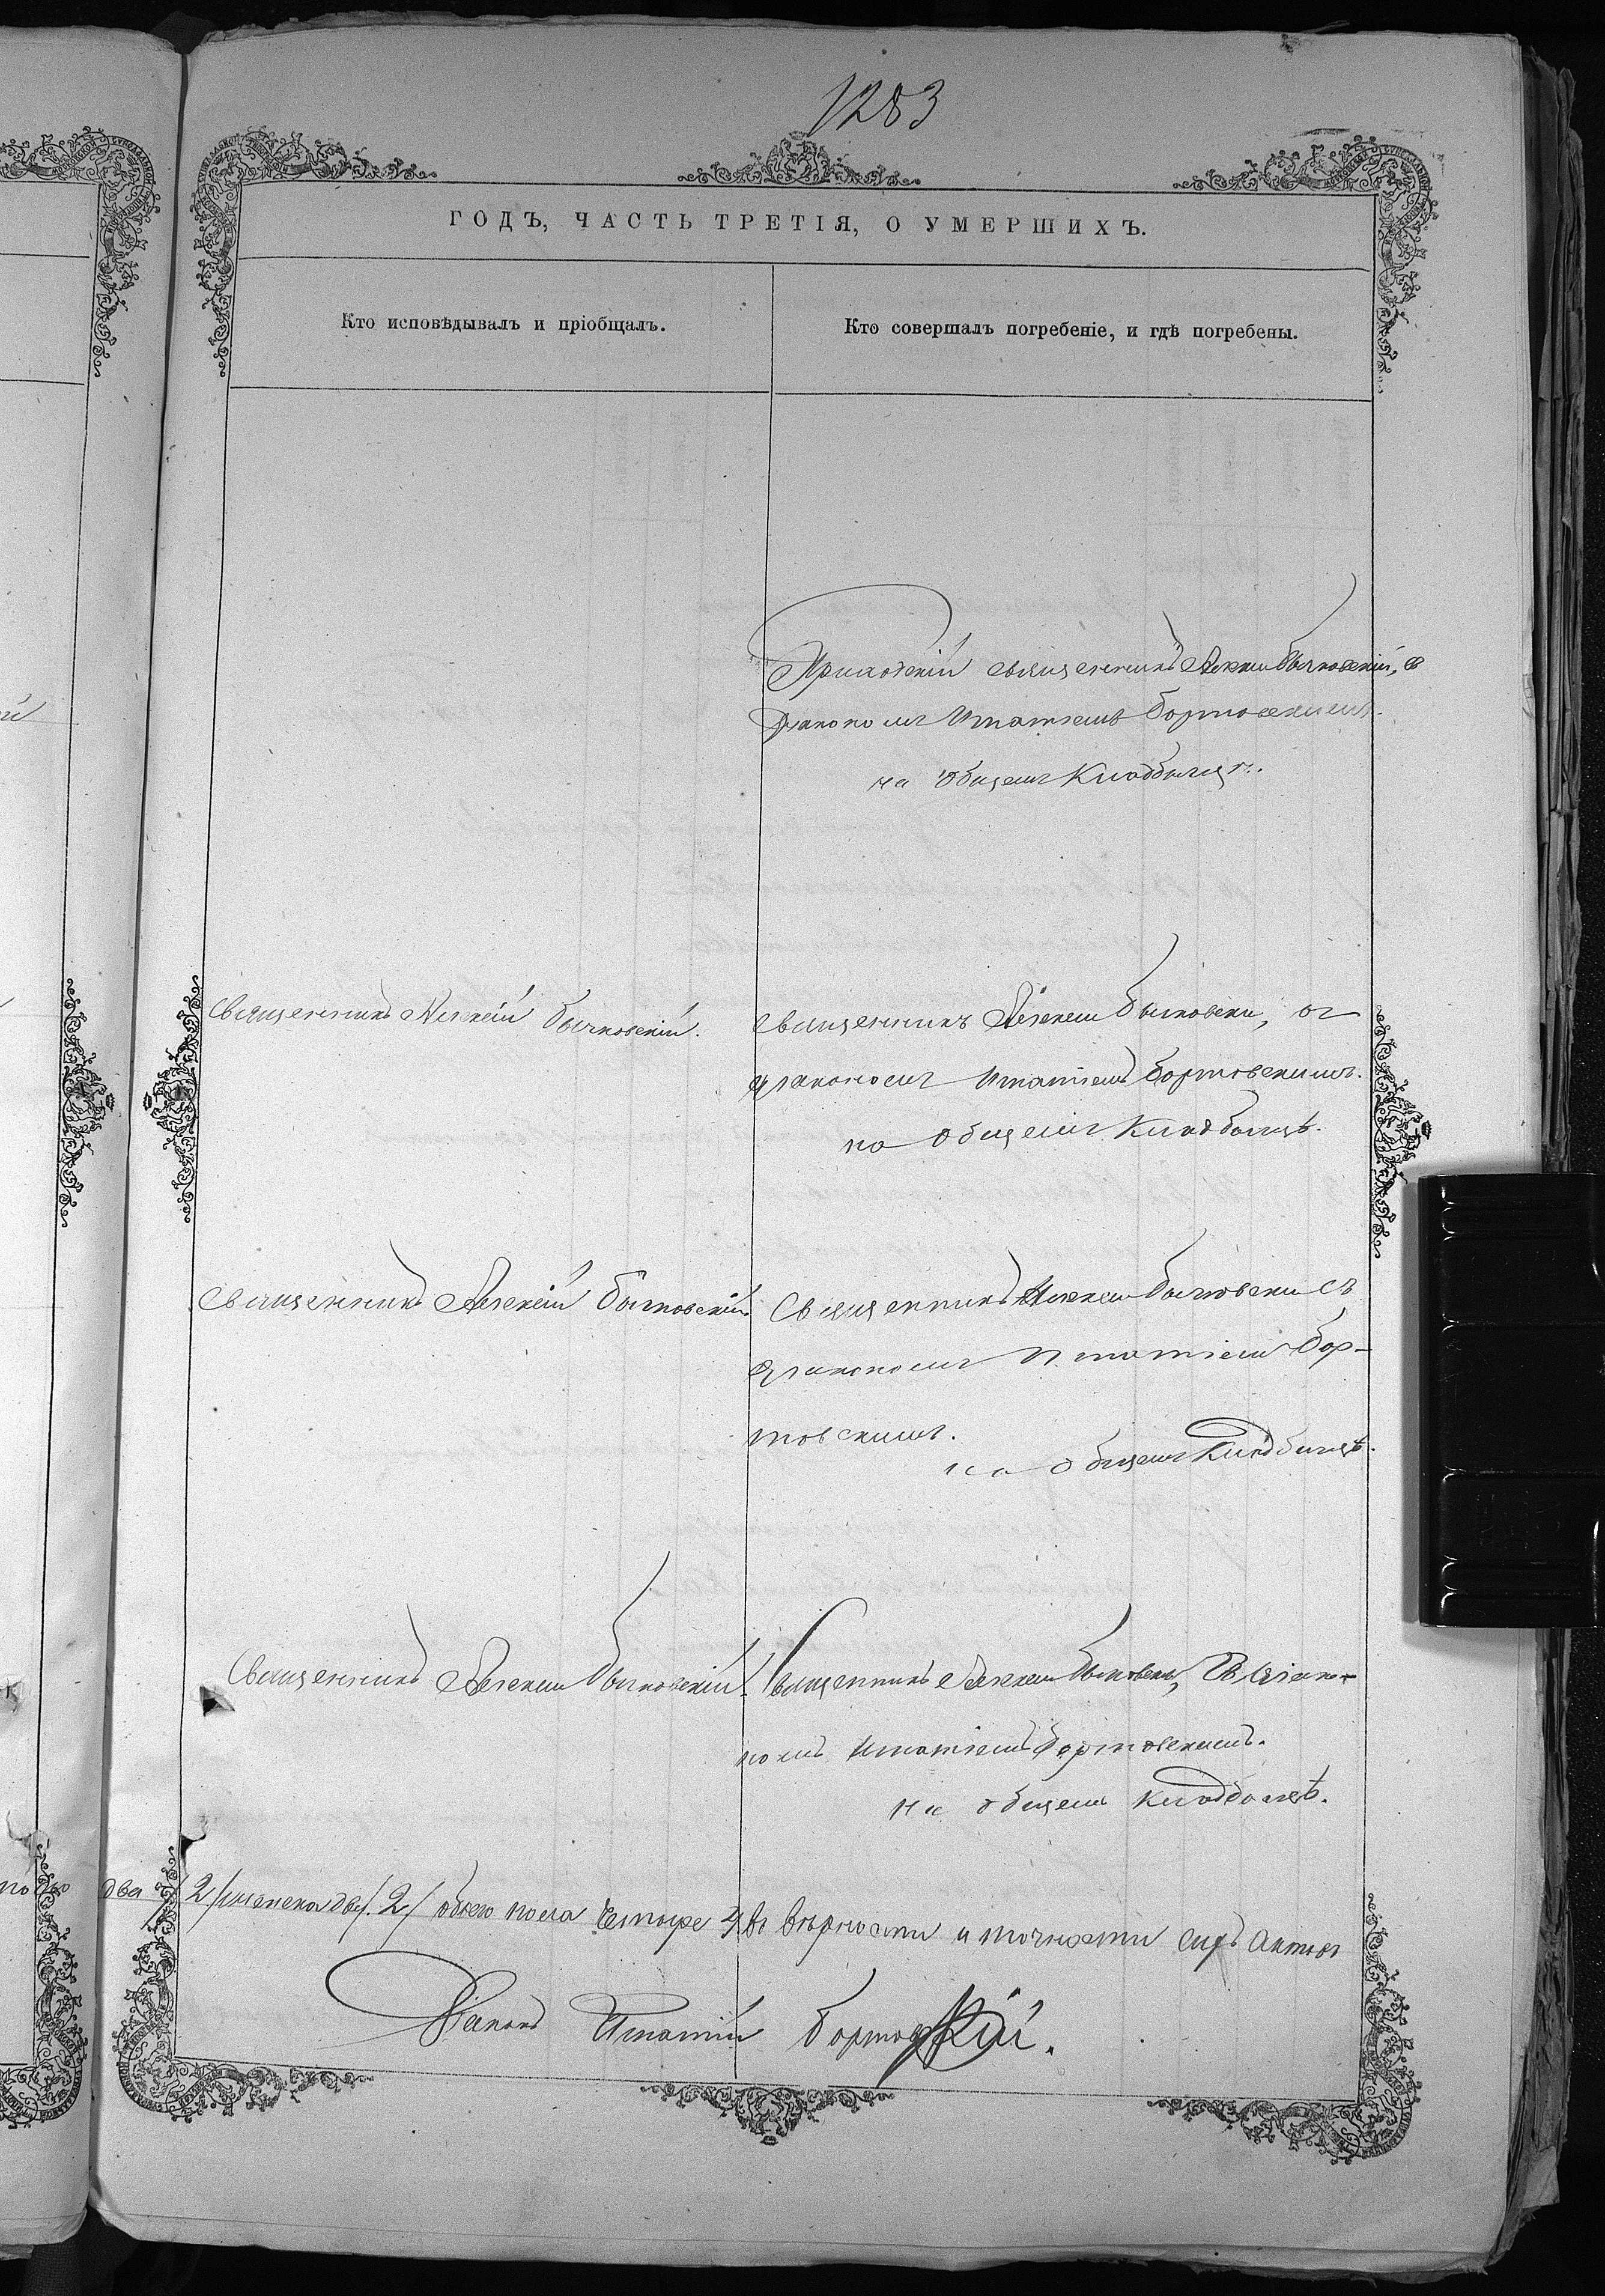 1283
ГОДЪ, ЧАСТЬ ТРЕТІЯ, О УМЕРШИХЪ.
Кто исповѣдывалъ и пріобщалъ.
Кто совершалъ погребеніе, и гдѣ погребены.
Приходскій священникъ Алексій Бычковскій, с
діакономъ Игнатіемъ Бортовскимъ.
на общемъ Кладбищѣ.
Священникъ Алексій Бычковскій.
Священникъ Алексій Бычковскій, съ
діакономъ Игнатіемъ Бортовскимъ.
на общемъ Кладбищѣ.
Священникъ Алексій Бычковскій.
Священникъ Алексій Бычковскій съ
діакономъ Игнатіемъ Бор-
товскимъ.
на общемъ Кладбищѣ.
Священникъ Алексій Бычковскій.
Священникъ Алексій Бычковскій, съ діако-
номъ Игнатіемъ Бортовскимъ.
на общемъ кладбищѣ.
два /2/ женска два /2/ обоего пола четыре 4. въ вѣрности и точности сихъ актовъ
Діаконъ Игнатій Бортовскій.